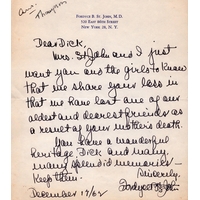 Ans.
Thompson
FORDYCE B. ST. JOHN, M.D.
EAST 66TH STREET
NEW YORK 21, N. Y.
Dear Dick,
Mrs. St John and I just
want you and the girls to know
that we share your loss in
that we have lost one of our
oldest and dearest friends as
a result of your mother's death.
You have a wonderful
heritage Dick and many,
many splendid memories —
Keep them.
Sincerely,
Fordyce B. St. John
December 17/62